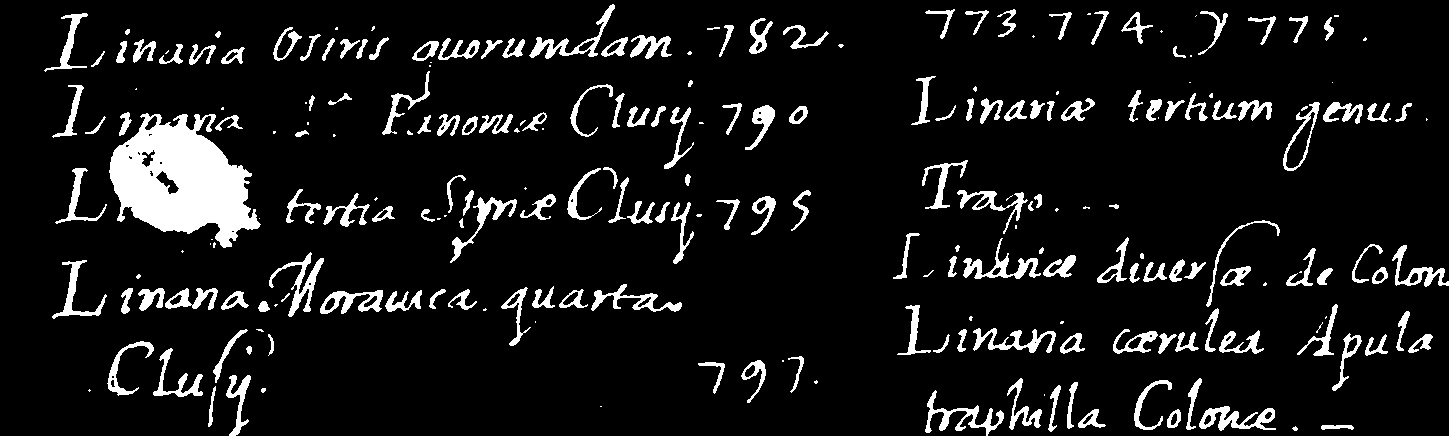 Linaria Osiris quorumdam. 782.
Linaria . 1ª Panoniæ Clusij. 790
tertia Styriæ Clusij. 795
Linaria Morauica quarta
Clusij. 797.
773. 774. y 775.
Linariæ tertium genus.
Trago. --
Linariæ diuersæ. de Colon
Linaria cærulea Apula
traphilla Colonæ. —